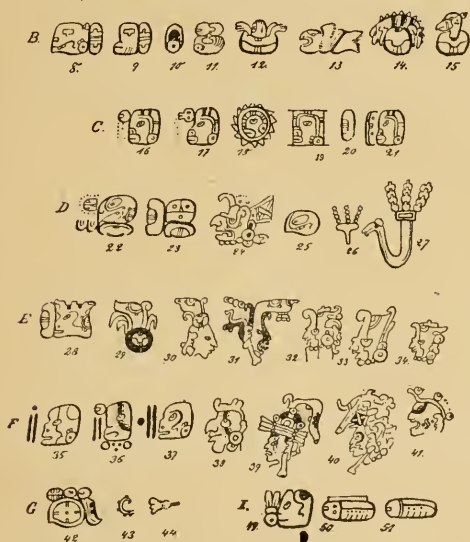 B.
8. 9 10 11. 12. 13 14. 15
C.
16 17 18 19 20 21
D
22 23 24 25 26 27
E
28 29 30 31 32 33 34.
F
35 36 37 38 39 40 41.
G I.
42 43 44 49 50 51